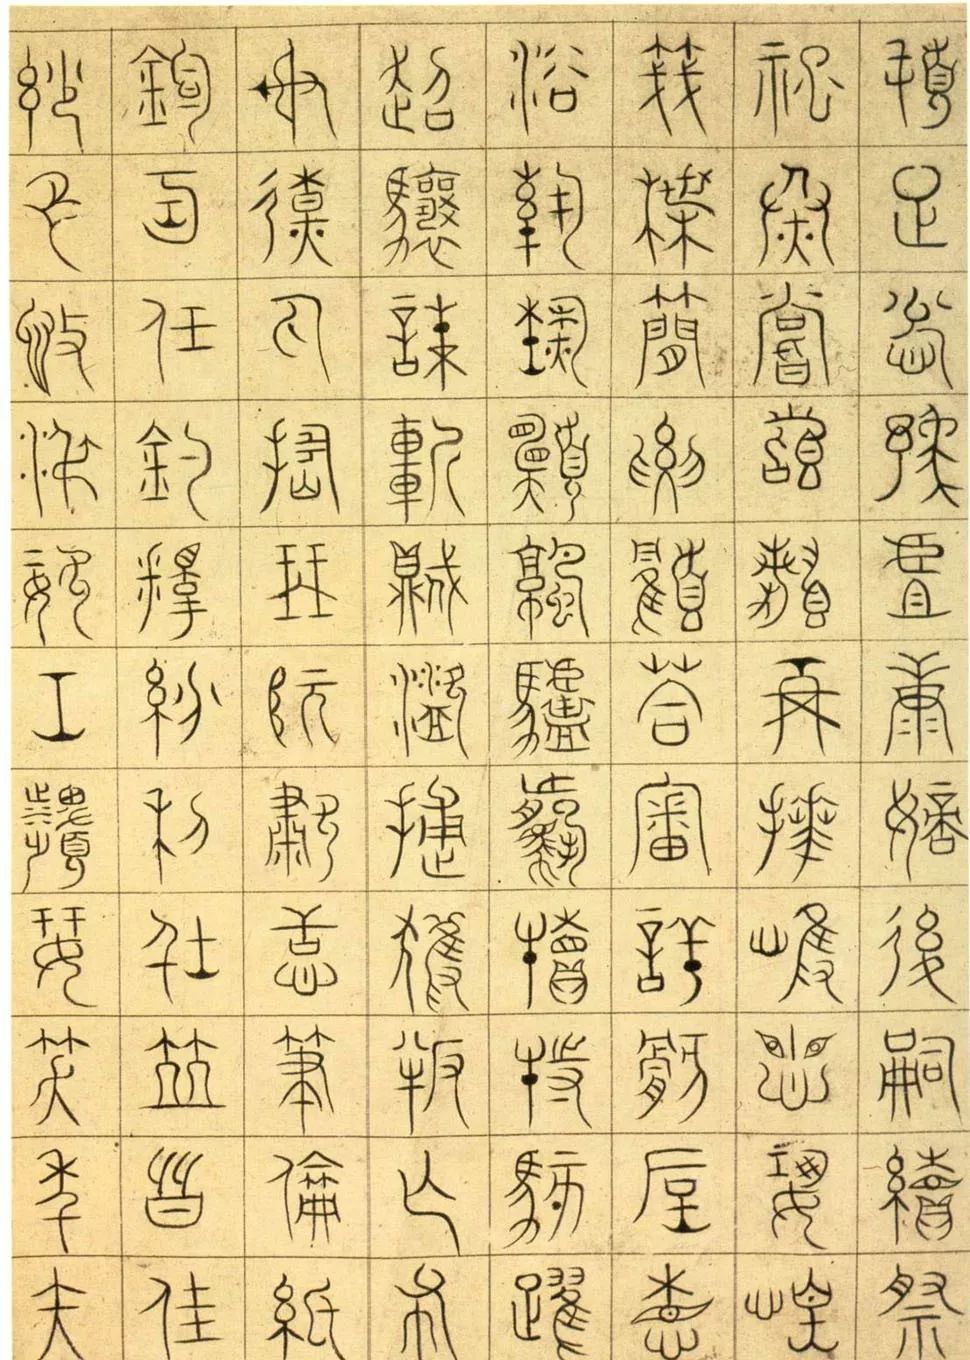 頓足悅豫且康嫡後嗣續祭
祀烝嘗稽顙再拜悚懼恐惶
牋牒簡要顧答審詳骸垢想
浴執熱願涼驢騾犢特駭躍
超驤誅斬賊盜捕獲叛亡布
射遼丸嵇琴阮嘯恬筆倫紙
鈞巧任釣釋紛利俗並皆佳
妙毛施淑姿工顰妍笑年矢